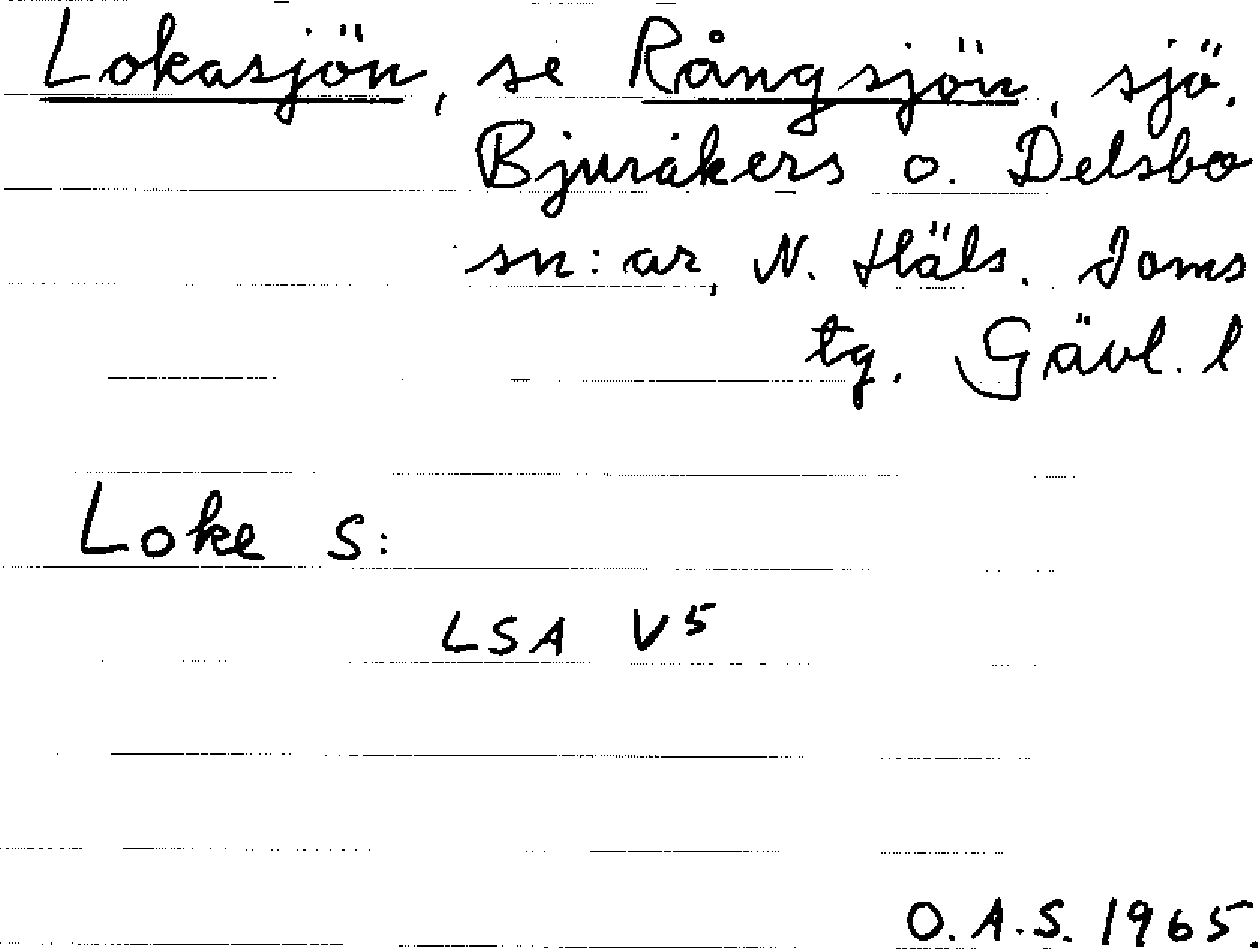 Lokasjön, se Rångsjön, sjö.
Bjuråkers o. Delsbo
sn:ar, N. Häls. Doms
tg. Gävl. l
Loke S:
LSA V5
O.A.S. 1965.